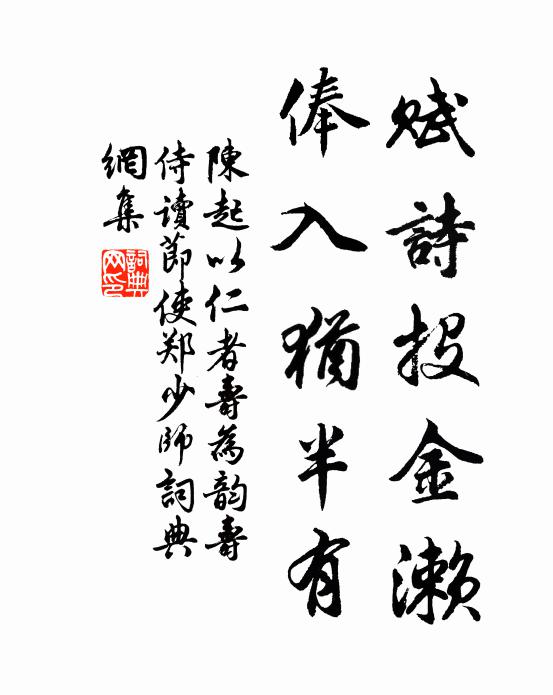 賦詩投金瀨
俸入猶半有
陳起以仁者壽為韵壽
侍讀節使郑少師詞典
網集
詞典网印